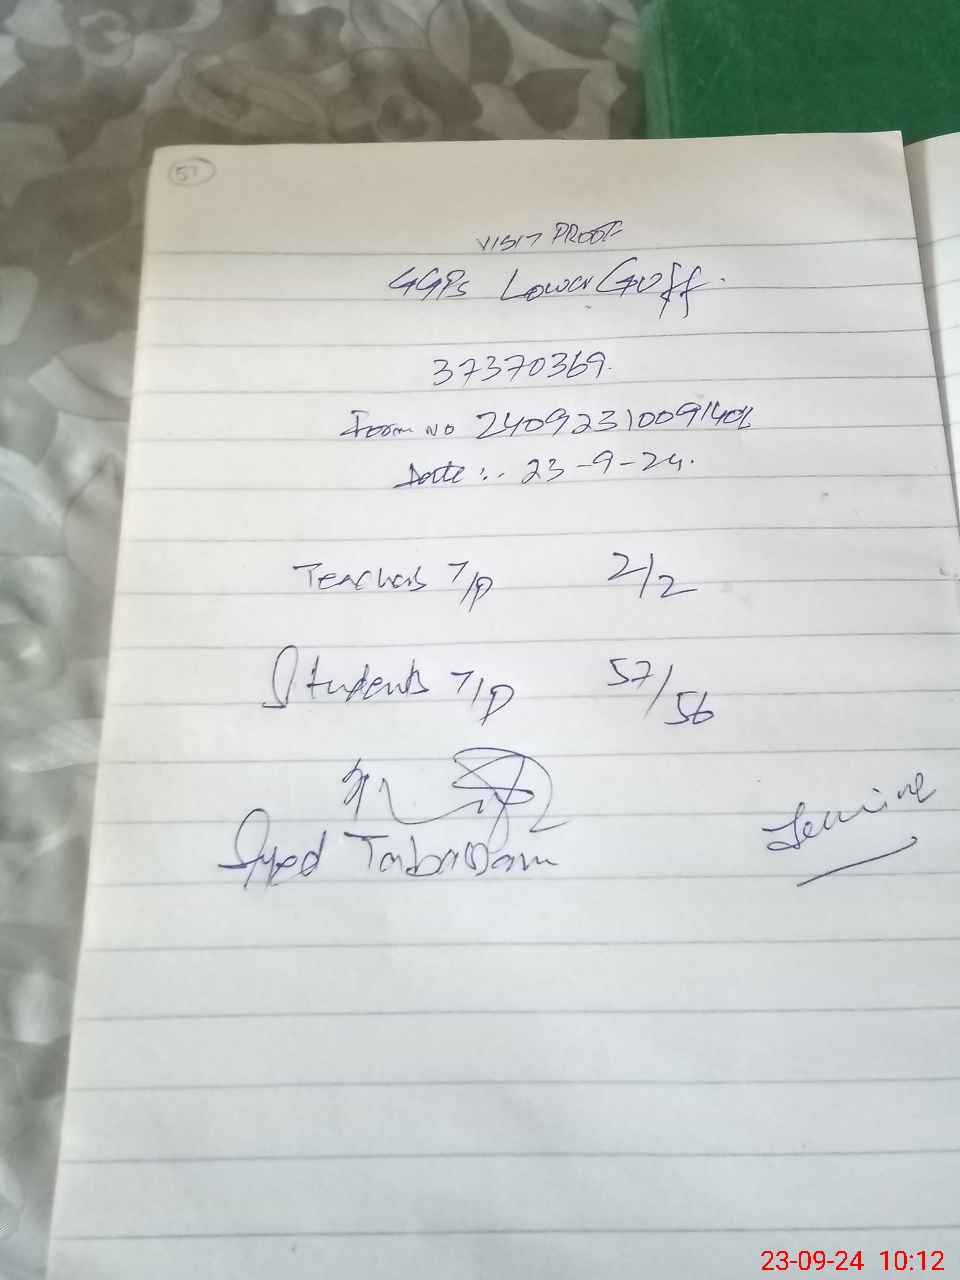 57
VISIT PROOF
GGPs Lower Goff.
37370369.
Form No 2409231009140
Date :. 23-9-24.
Teachers T/P 2/2
Students T/P 57/56
Syed Tabassam
23-09-24 10:12